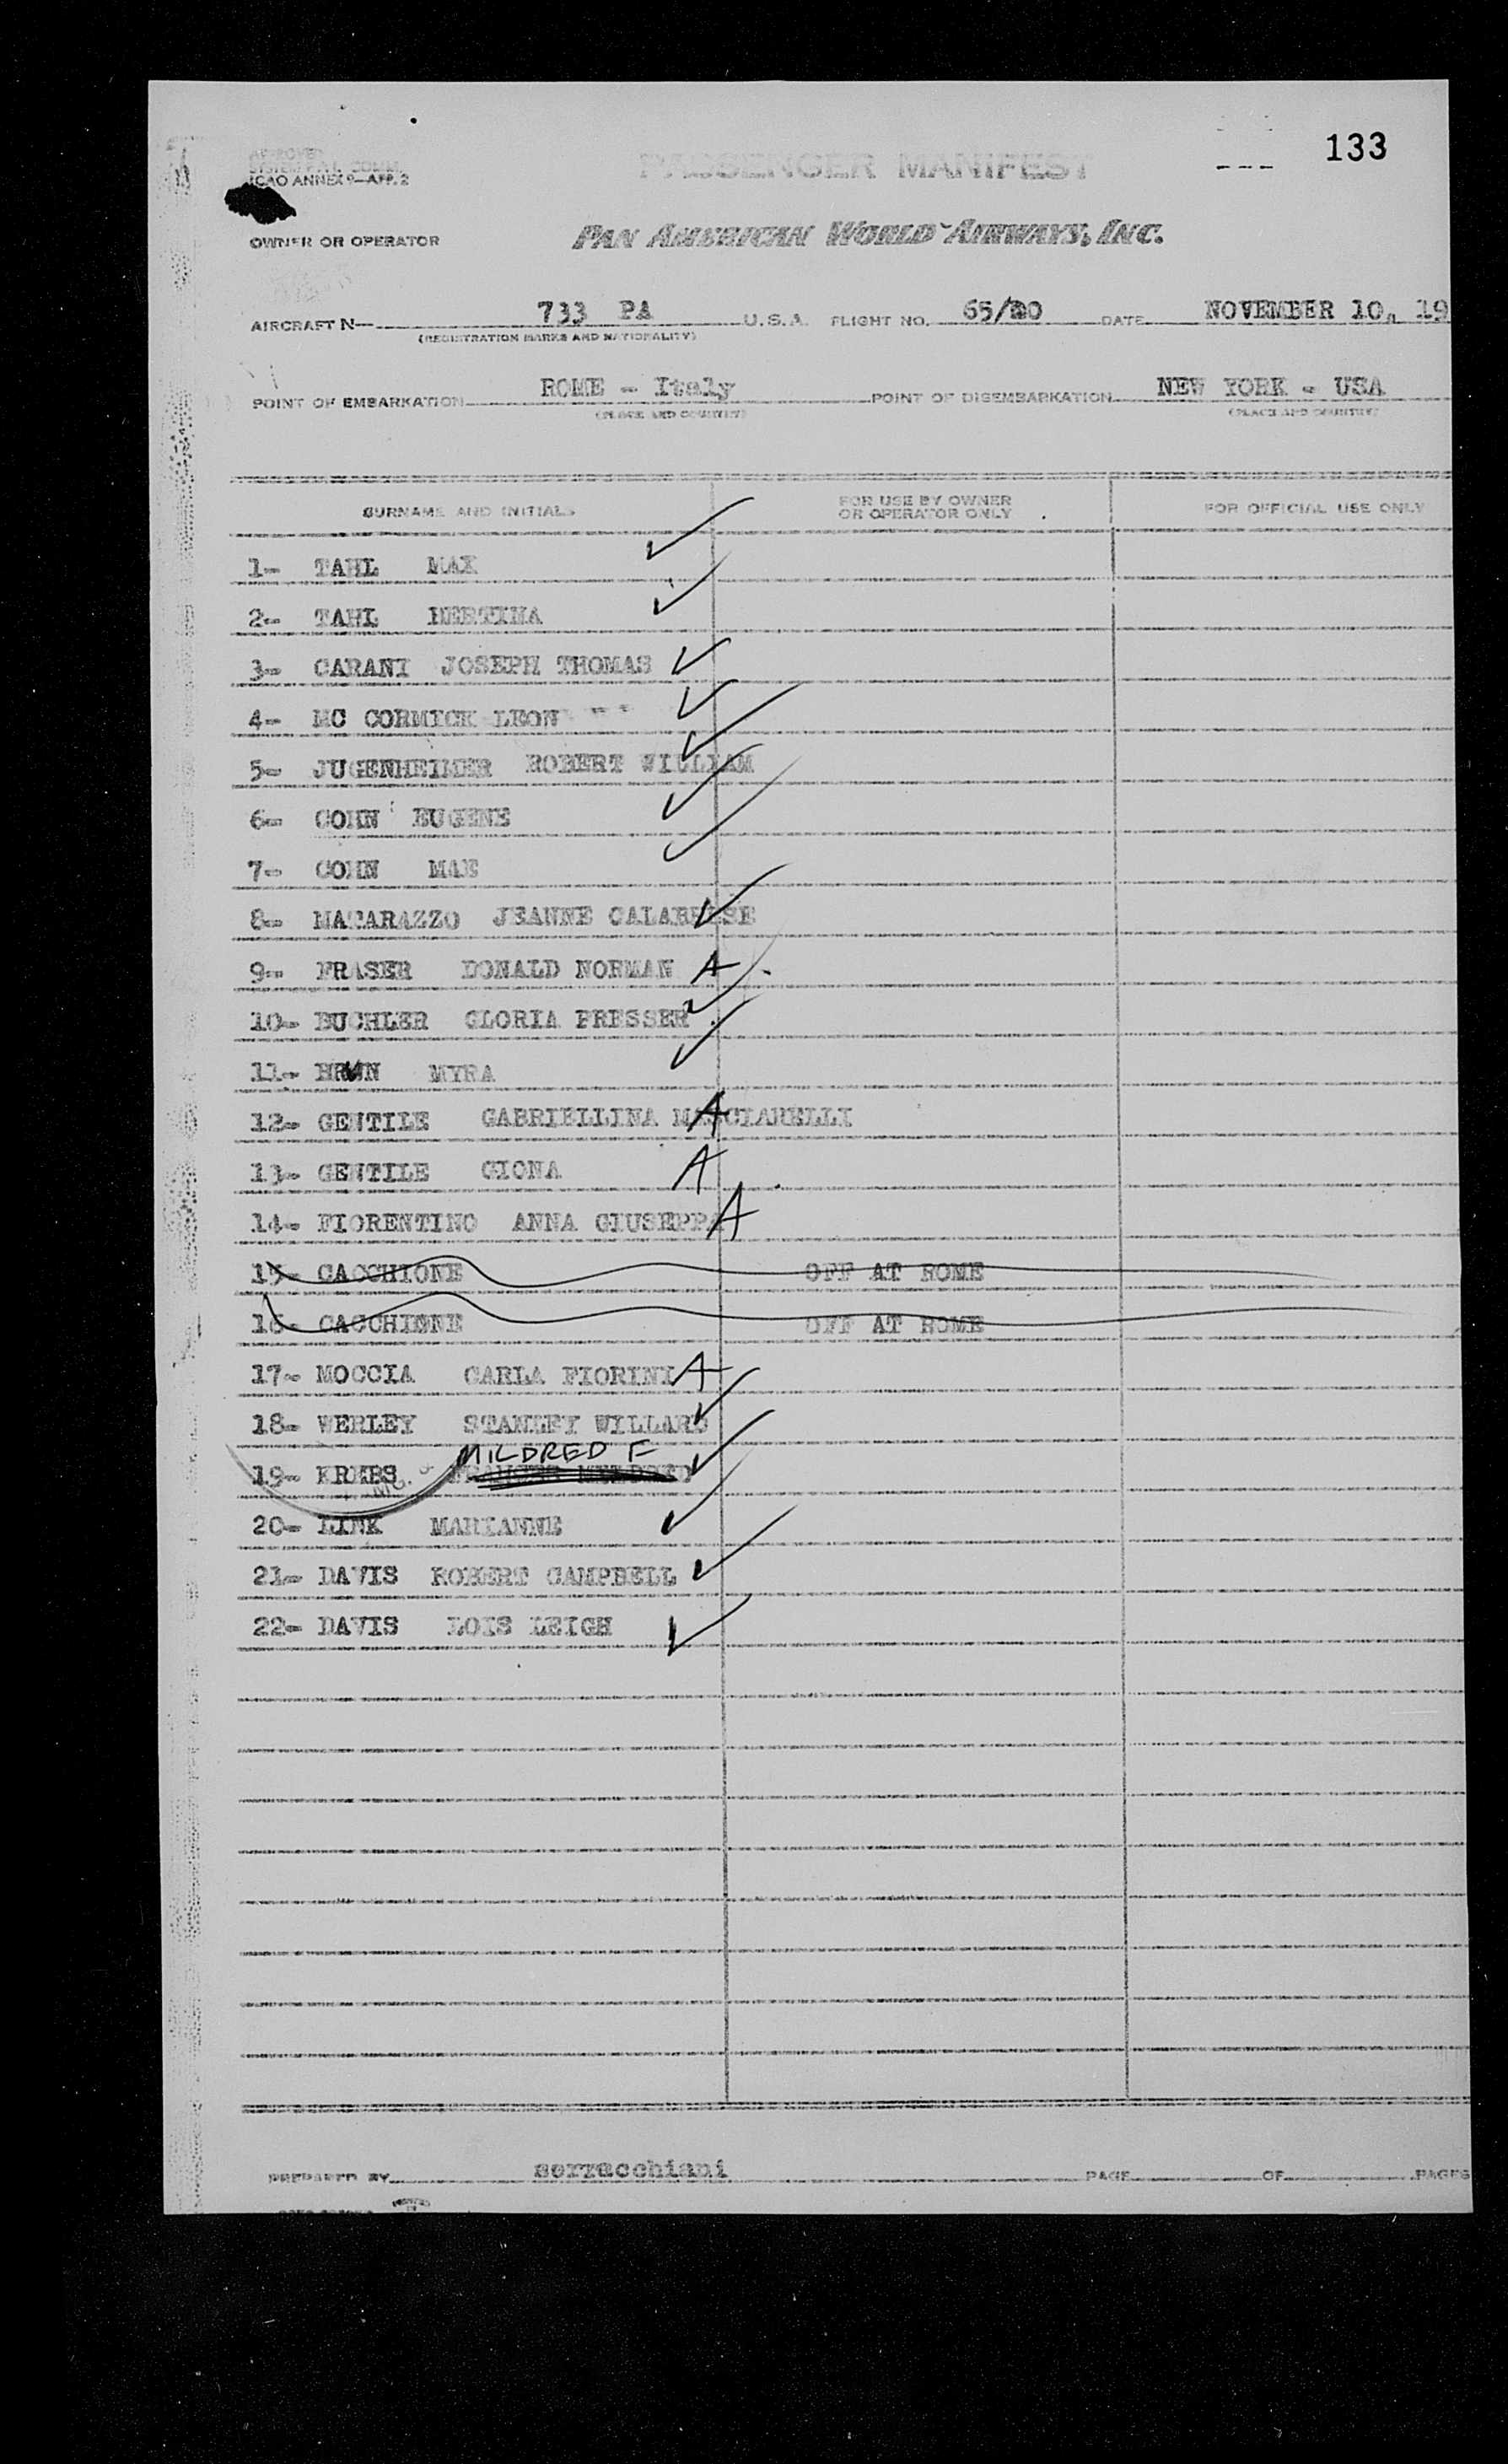 133
APPROVED
SYSTEM F.A.L. COMM.
ICAO ANNEX 9—APP. 2
PASSENGER MANIFEST
OWNER OR OPERATOR PAN AMERICAN WORLD AIRWAYS, INC.
AIRCRAFT N— 733 PA U.S.A. FLIGHT NO. 65/20 DATE NOVEMBER 10, 19
(REGISTRATION MARKS AND NATIONALITY)
POINT OF EMBARKATION ROME - Italy POINT OF DISEMBARKATION NEW YORK - USA
(PLACE AND COUNTRY) (PLACE AND COUNTRY)
SURNAME AND INITIALS FOR USE BY OWNER OR OPERATOR ONLY FOR OFFICIAL USE ONLY
1- TAHL MAX ✓
2- TAHL HERTINA ✓
3- CARANI JOSEPH THOMAS ✓
4- MC CORMICK LEON ✓
5- JUGENHEIMER ROBERT WILLIAM ✓
6- COHN EUGENE ✓
7- COHN MAE ✓
8- MACARAZZO JEANNE CALABRESE ✓
9- FRASER DONALD NORMAN A
10- BUCHLER GLORIA PRESSER ✓
11- BRUN MYRA ✓
12- GENTILE GABRIELLINA MASCIARELLI A
13- GENTILE GIONA A
14- FIORENTINO ANNA GIUSEPPA A
15- CACCHIONE OFF AT ROME
16- CACCHIONE OFF AT ROME
17- MOCCIA CARLA FIORINI A
18- WERLEY STANLEY WILLARD ✓
MILDRED F
19- KREBS FRANCES MILDRED ✓
20- LINK MARIANNE ✓
21- DAVIS ROBERT CAMPBELL ✓
22- DAVIS LOIS LEIGH ✓
PREPARED BY serracchiani PAGE OF PAGES